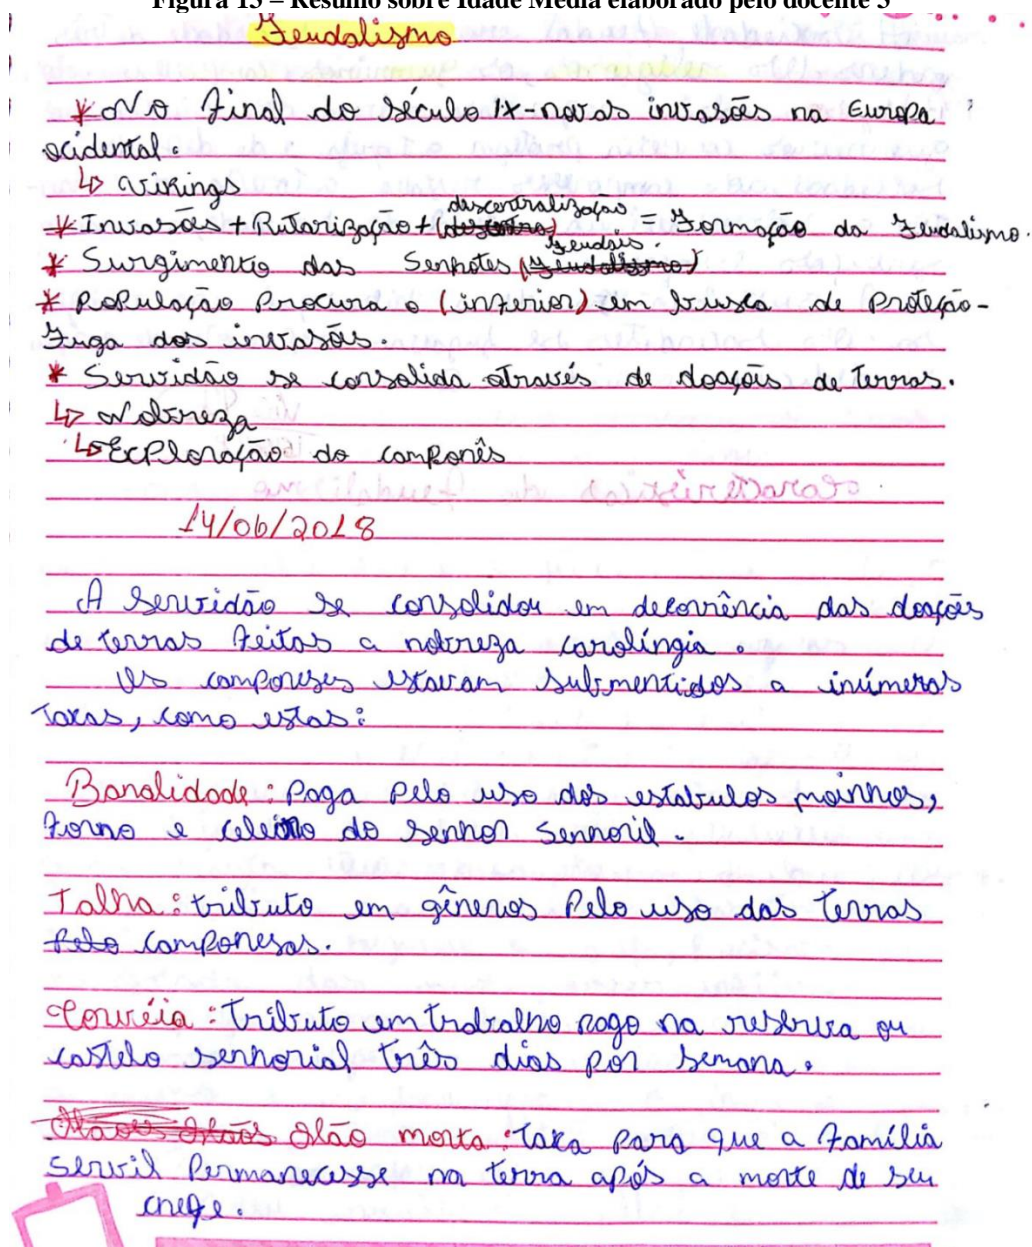 Figura 15 – Resumo sobre Idade Média elaborado pelo docente 3
Feudalismo
* No Final do século IX-novas invasões na Europa
ocidental.
↳ Vikings
descentralização
* Invasões + Rutarização + (descentra) = Formação do Feudalismo.
feudais.
* Surgimento das Senhores (feudalismo)
* População Procura o (interior) em busca de Proteção-
Fuga das invasões.
* Servidão se consolida através de doações de terras.
↳ Nobreza
↳ Exploração do camponês
14/06/2018
A servidão se consolidou em decorrência das doações
de terras feitas a nobreza carolíngia.
Os camponeses estavam submentidos a inúmeros
taxas, como estas:
Banalidade: Paga Pelo uso dos estabulos moinhos,
forno e celeiro do senhor Senhoril.
Talha: tributo em gêneros Pelo uso das terras
Pelo camponesas.
Corvéia: Tributo em trabalho pago na reserva ou
castelo senhorial três dias por semana.
Mãos Mãos Mão morta: Taxa para que a família
servil Permanecesse na terra após a morte de seu
chefe.